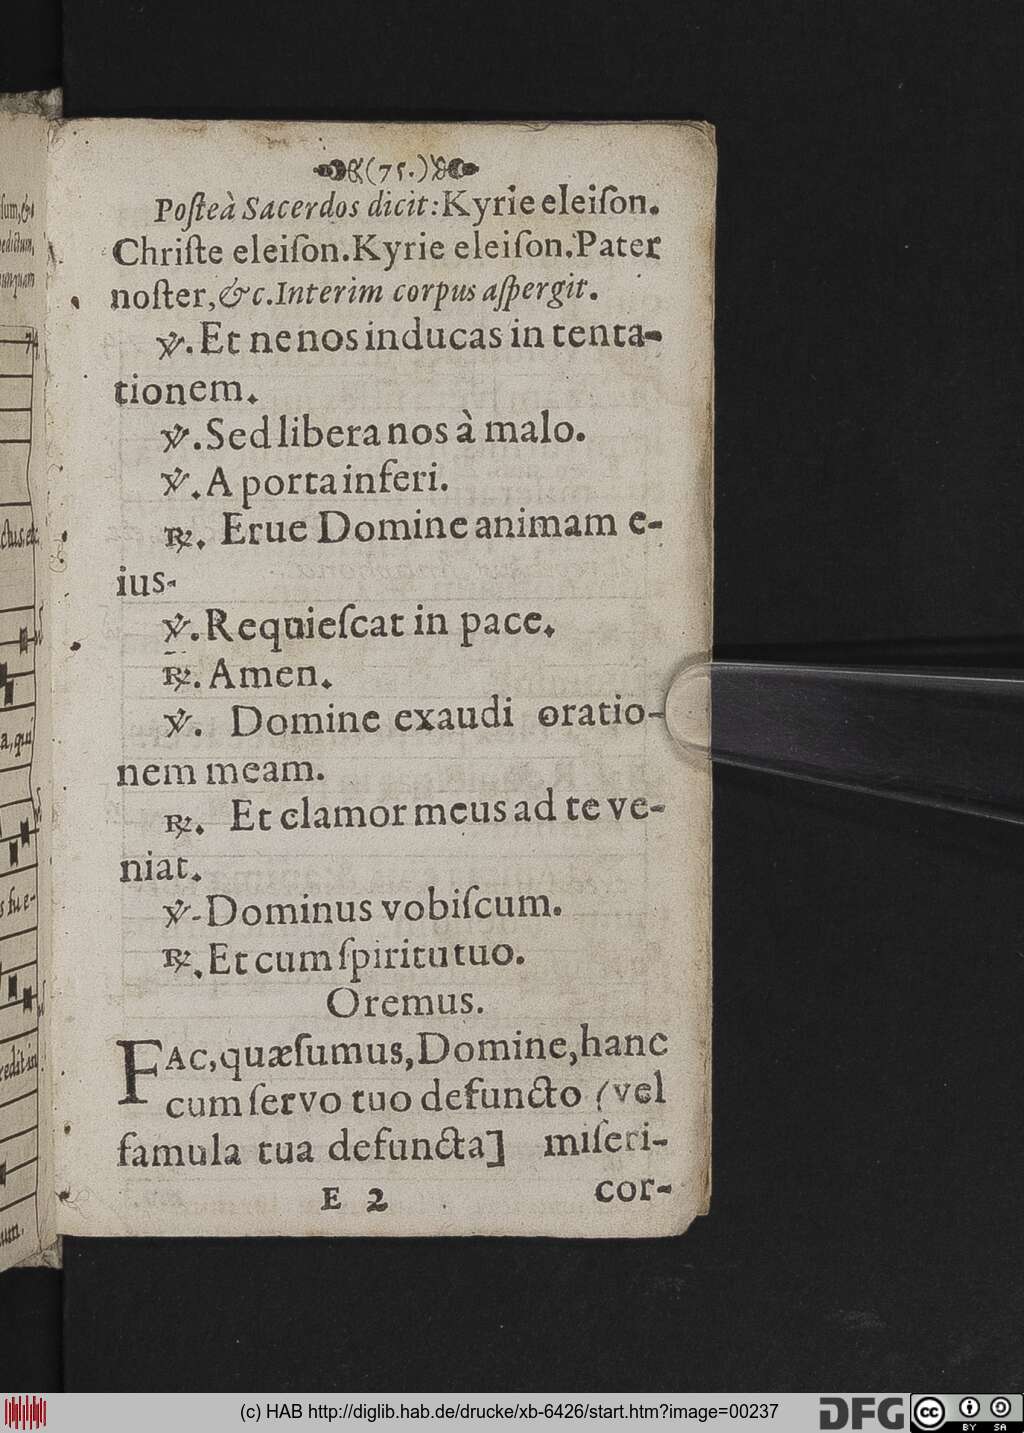 (75.)
Poſteà Sacerdos dicit: Kyrie eleiſon.
Chriſte eleiſon. Kyrie eleiſon. Pater
noſter, &c. Interim corpus aſpergit.
℣. Et ne nos inducas in tenta-
tionem.
℣. Sed libera nos à malo.
℣. A porta inferi.
℟. Erue Domine animam e-
ius.
℣. Requieſcat in pace.
℟. Amen.
℣. Domine exaudi oratio-
nem meam.
℟. Et clamor meus ad te ve-
niat.
℣. Dominus vobiſcum.
℟. Et cum ſpiritu tuo.
Oremus.
FAc, quæſumus, Domine, hanc
cum ſervo tuo defuncto (vel
famula tua defuncta] miſeri-
E 2 cor-
(c) HAB http://diglib.hab.de/drucke/xb-6426/start.htm?image=00237
DFG
cc BY SA